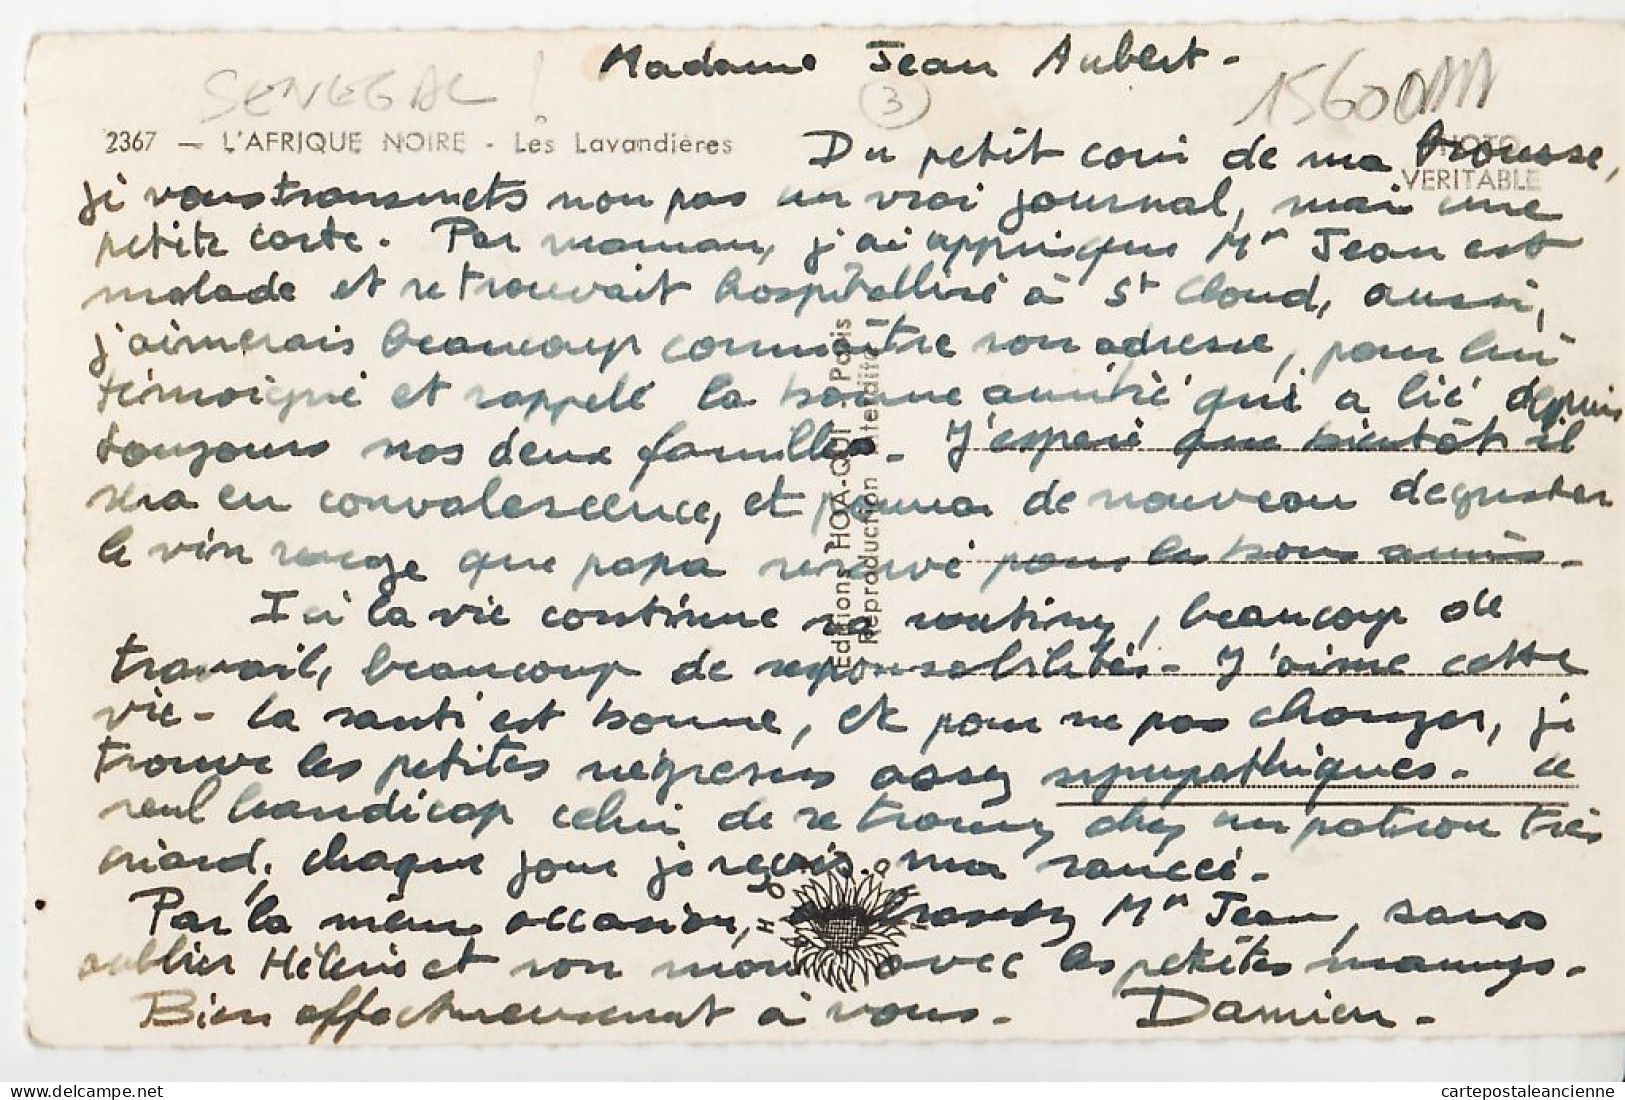 Madame Jean Aubert -
SENEGAL !
3
15600
2367 — L'AFRIQUE NOIRE - Les Lavandières
PHOTO
VERITABLE
Du petit coin de ma brousse,
je vous transmets non pas un vrai journal, mais une
petite carte. Par maman, j'ai appris que Mr Jean est
malade et se trouvait hospitallisé à St Cloud, aussi,
j'aimerais beaucoup connaître son adresse, pour lui
témoigné et rappelé la bonne amitié qui a lié depuis
toujours nos deux familles - J'espère que bientôt il
sera en convalescence, et pourra de nouveau deguster
le vin rouge que papa reserve pour les bons amis -
Ici la vie continue sa routine, beaucoup de
travail, beaucoup de reponsabilités - J'aime cette
vie - la santé est bonne, et pour ne pas changer, je
trouve les petites négresses assez sympathiques - le
seul handicap celui de se trouver chez un patron très
criard, chaque jour je reçois ma saucée -
Par la même occasion, embrassez Mr Jean, sans
oublier Hélène et son mari avec les petites mamys -
Bien affectueusement à vous - Damien -
Editions HOA-QUI - Paris
Reproduction interdite
HOA QUI
cartepostaleancienne